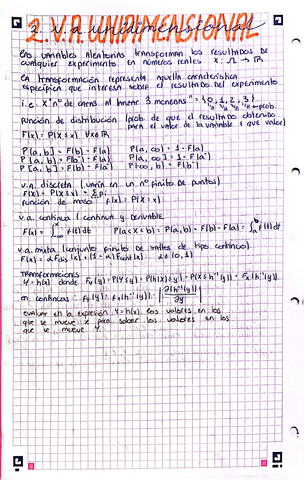 2. V.A. UNIDIMENSIONAL
2. v.a unidimensional
las variables aleatorias transforman los resultados de
cualquier experimento en números reales X: Ω → ℝ
la transformación representa aquella característica
específica que interesa sobre el resultado del experimento
i.e. X "nº de caras al lanzar 3 monedas" = {0, 1, 2, 3}
1/8 3/8 3/8 1/8 ← prob.
función de distribución (prob de que el resultado obtenido
para el valor de la variable ≤ que valor)
F(x) = P(X ≤ x) ∀x∈ℝ
P(a, b] = F(b) - F(a) P(a, ∞) = 1 - F(a)
P[a, b] = F(b) - F(a⁻) P[a, ∞) = 1 - F(a⁻)
P[a, b) = F(b⁻) - F(a⁻) P(-∞, b) = F(b⁻)
v.a. discreta (varía en un nº finito de puntos)
F(x) = P(X ≤ x) = Σ pi
función de masa f(x) = P(X = x)
v.a. continua (continua y derivable
F(x) = ∫ f(t) dt P(a < X ≤ b) = P(a, b) = F(b) - F(a) = ∫ f(t) dt
v.a. mixta (conjunto finito de saltos de tipo continuo)
F(x) = α Fdis(x) + (1 - α) Fcont(x) α ∈ (0, 1)
TRANSFORMACIONES
Y = h(x) donde Fy(y) = P(Y ≤ y) = P(h(x) ≤ y) = P(X ≤ h⁻¹(y)) = Fx(h⁻¹(y))
en continuas: fy(y) = fx(h⁻¹(y)) · |∂(h⁻¹(y))/∂y|
evaluar en la expresión y = h(x) los valores en los
que se mueve x para saber los valores en los
que se mueve y